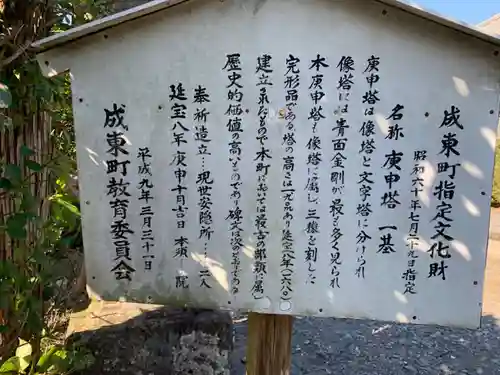 成東町指定文化財
昭和六十年七月二十九日指定
名称 庚申塔 一基
庚申塔は像塔と文字塔に分けられ
像塔には青面金剛が最も多く見られ
本庚申塔も像塔に属し、三猿を刻した
完形品である 塔の高さは 延宝八年(一六八
建立されたもので本町においては最古の部類に属し
歴史的価値の高いものであり碑文は次のとおり
奉祈造立…現世安隠所…
延宝八年庚申十月吉日 本須 院
平成九年三月三十一日
成東町教育委員会